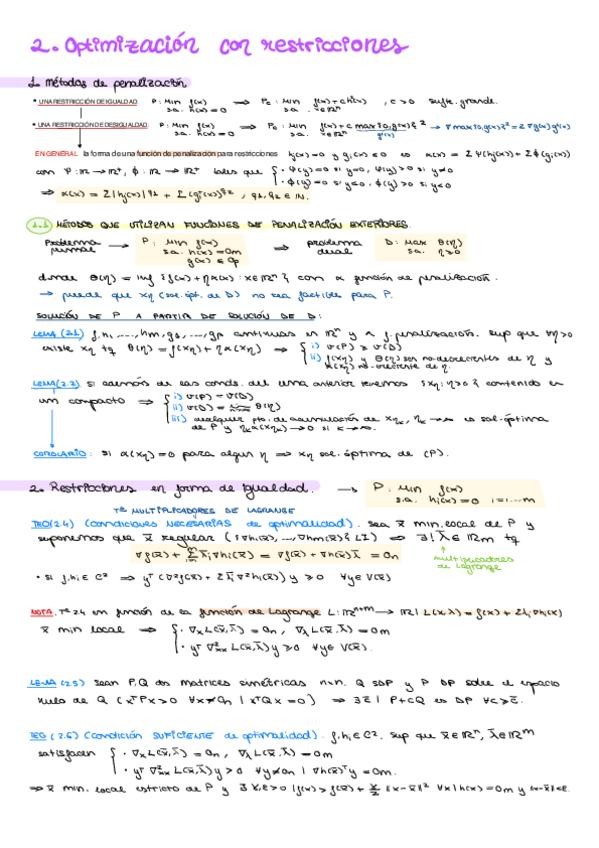 2. Optimización con restricciones
1. Métodos de penalización
• UNA RESTRICCIÓN DE IGUALDAD P: Min f(x) s.a. h(x)=0 ⟶ Pc: Min f(x)+ch²(x), c>0 sufte. grande.
• UNA RESTRICCIÓN DE DESIGUALDAD P: Min f(x) s.a.
EN GENERAL la forma de una función de penalización para restricciones hj(x)=0 y gi(x)≤0 es α(x) = Σψ(hj(x)) + Σϕ(gi(x))
con ψ: ℝ → ℝ⁺, ϕ: ℝ → ℝ⁺ tales que { · ψ(y)=0 si y=0, ψ(y)>0 si y≠0
· ϕ(y)=0 si y≤0, ϕ(y)>0 si
1.1 MÉTODOS QUE UTILIZAN FUNCIONES DE PENALIZACIÓN EXTERIORES.
Problema primal ⟶ P: Min f(x) s.a. h(x)=0m g(x)≤0p ⟹ problema dual D: Max θ(η) s.a. η≥0
donde θ(η) = inf {f(x)+ηα(x): x∈ℝⁿ} con α función de penalización.
→ puede que xη (sol. ópt. de D) no sea factible para P.
SOLUCIÓN DE P A PARTIR DE SOLUCIÓN DE D:
LEMA (2.1) f, h1, ..., hm, g1, ..., gp continuas en ℝⁿ y α f. penalización. Sup que ∀η>0
existe xη tq θ(η) = f(xη)+ηα(xη) ⟹ { i) v(P) ≥ v(D)
ii) f(xη) y θ(η) son no-decrecientes de η y
α(xη) no-creciente de η.
si además de las conds. del lema anterior tenemos {xη: η>0} contenido en
un compacto ⟹ { i) v(P) = v(D)
iii) cualquier pto. de acumulación de xηk, ηk→∞ es sol. óptima
de P y ηkα(xηk)→0 si k→∞.
COROLARIO: si α(xη)=0 para algún η ⟹ xη sol. óptima de (P).
2. Restricciones en forma de igualdad. ⟶ P: Min f(x) s.a. hi(x)=0 i=1...m
Tª MULTIPLICADORES DE LAGRANGE
TEO (2.4) (Condiciones NECESARIAS de optimalidad). Sea x̄ min. local de P y
suponemos que x̄ regular ({∇h1(x̄), ..., ∇hm(x̄)} LI) ⟹ ∃! λ̄ ∈ ℝm tq
∇f(x̄) + Σλ̄i∇hi(x̄) = ∇f(x̄) + ∇h(x̄)λ̄ = 0n
multiplicadores de Lagrange
• si f, hi ∈ C² ⟹ yᵀ(∇²f(x̄) + Σλ̄i∇²hi(x̄))y ≥ 0 ∀y∈V(x̄)
NOTA. Tª 2.4 en función de la función de Lagrange L: ℝⁿ⁺ᵐ ⟶ ℝ | L(x,λ) = f(x) +
x̄ min local ⟹ { · ∇xL(x̄,λ̄) = 0n, ∇λL(x̄,λ̄) = 0m
· yᵀ∇²xxL(x̄,λ̄)y ≥ 0 ∀y∈V(x̄).
LEMA (2.5) Sean P,Q dos matrices simétricas n×n. Q SDP y P DP sobre el espacio
nulo de Q (xᵀPx>0 ∀x≠0n | xᵀQx=0) ⟹ ∃c̄ | P+cQ es DP ∀c>c̄.
TEO (2.6) (Condición SUFICIENTE de optimalidad). f, hi ∈ C². Sup que x̄∈ℝⁿ, λ̄∈ℝᵐ
satisfacen { · ∇xL(x̄,λ̄) = 0n, ∇λL(x̄,λ̄) = 0m
· yᵀ∇²xxL(x̄,λ̄)y > 0 ∀y≠0n | ∇h(x̄)ᵀy = 0m.
⟹ x̄ min. local estricto de P y ∃ γ,ε>0 | f(x) ≥ f(x̄) + γ/2 ‖x-x̄‖² ∀x | h(x)=0m y ‖x-x̄‖<ε.